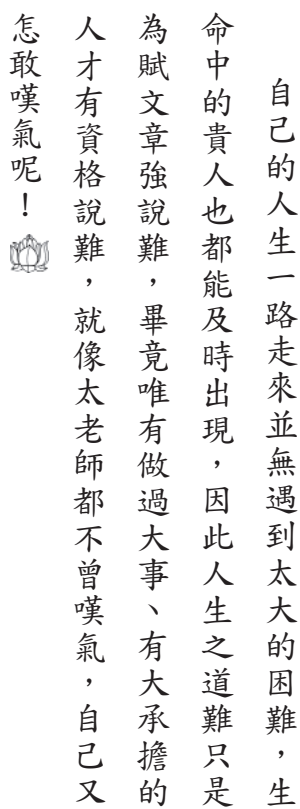 自己的人生一路走來並無遇到太大的困難，生
命中的貴人也都能及時出現，因此人生之道難只是
為賦文章強說難，畢竟唯有做過大事、有大承擔的
人才有資格說難，就像太老師都不曾嘆氣，自己又
怎敢嘆氣呢！